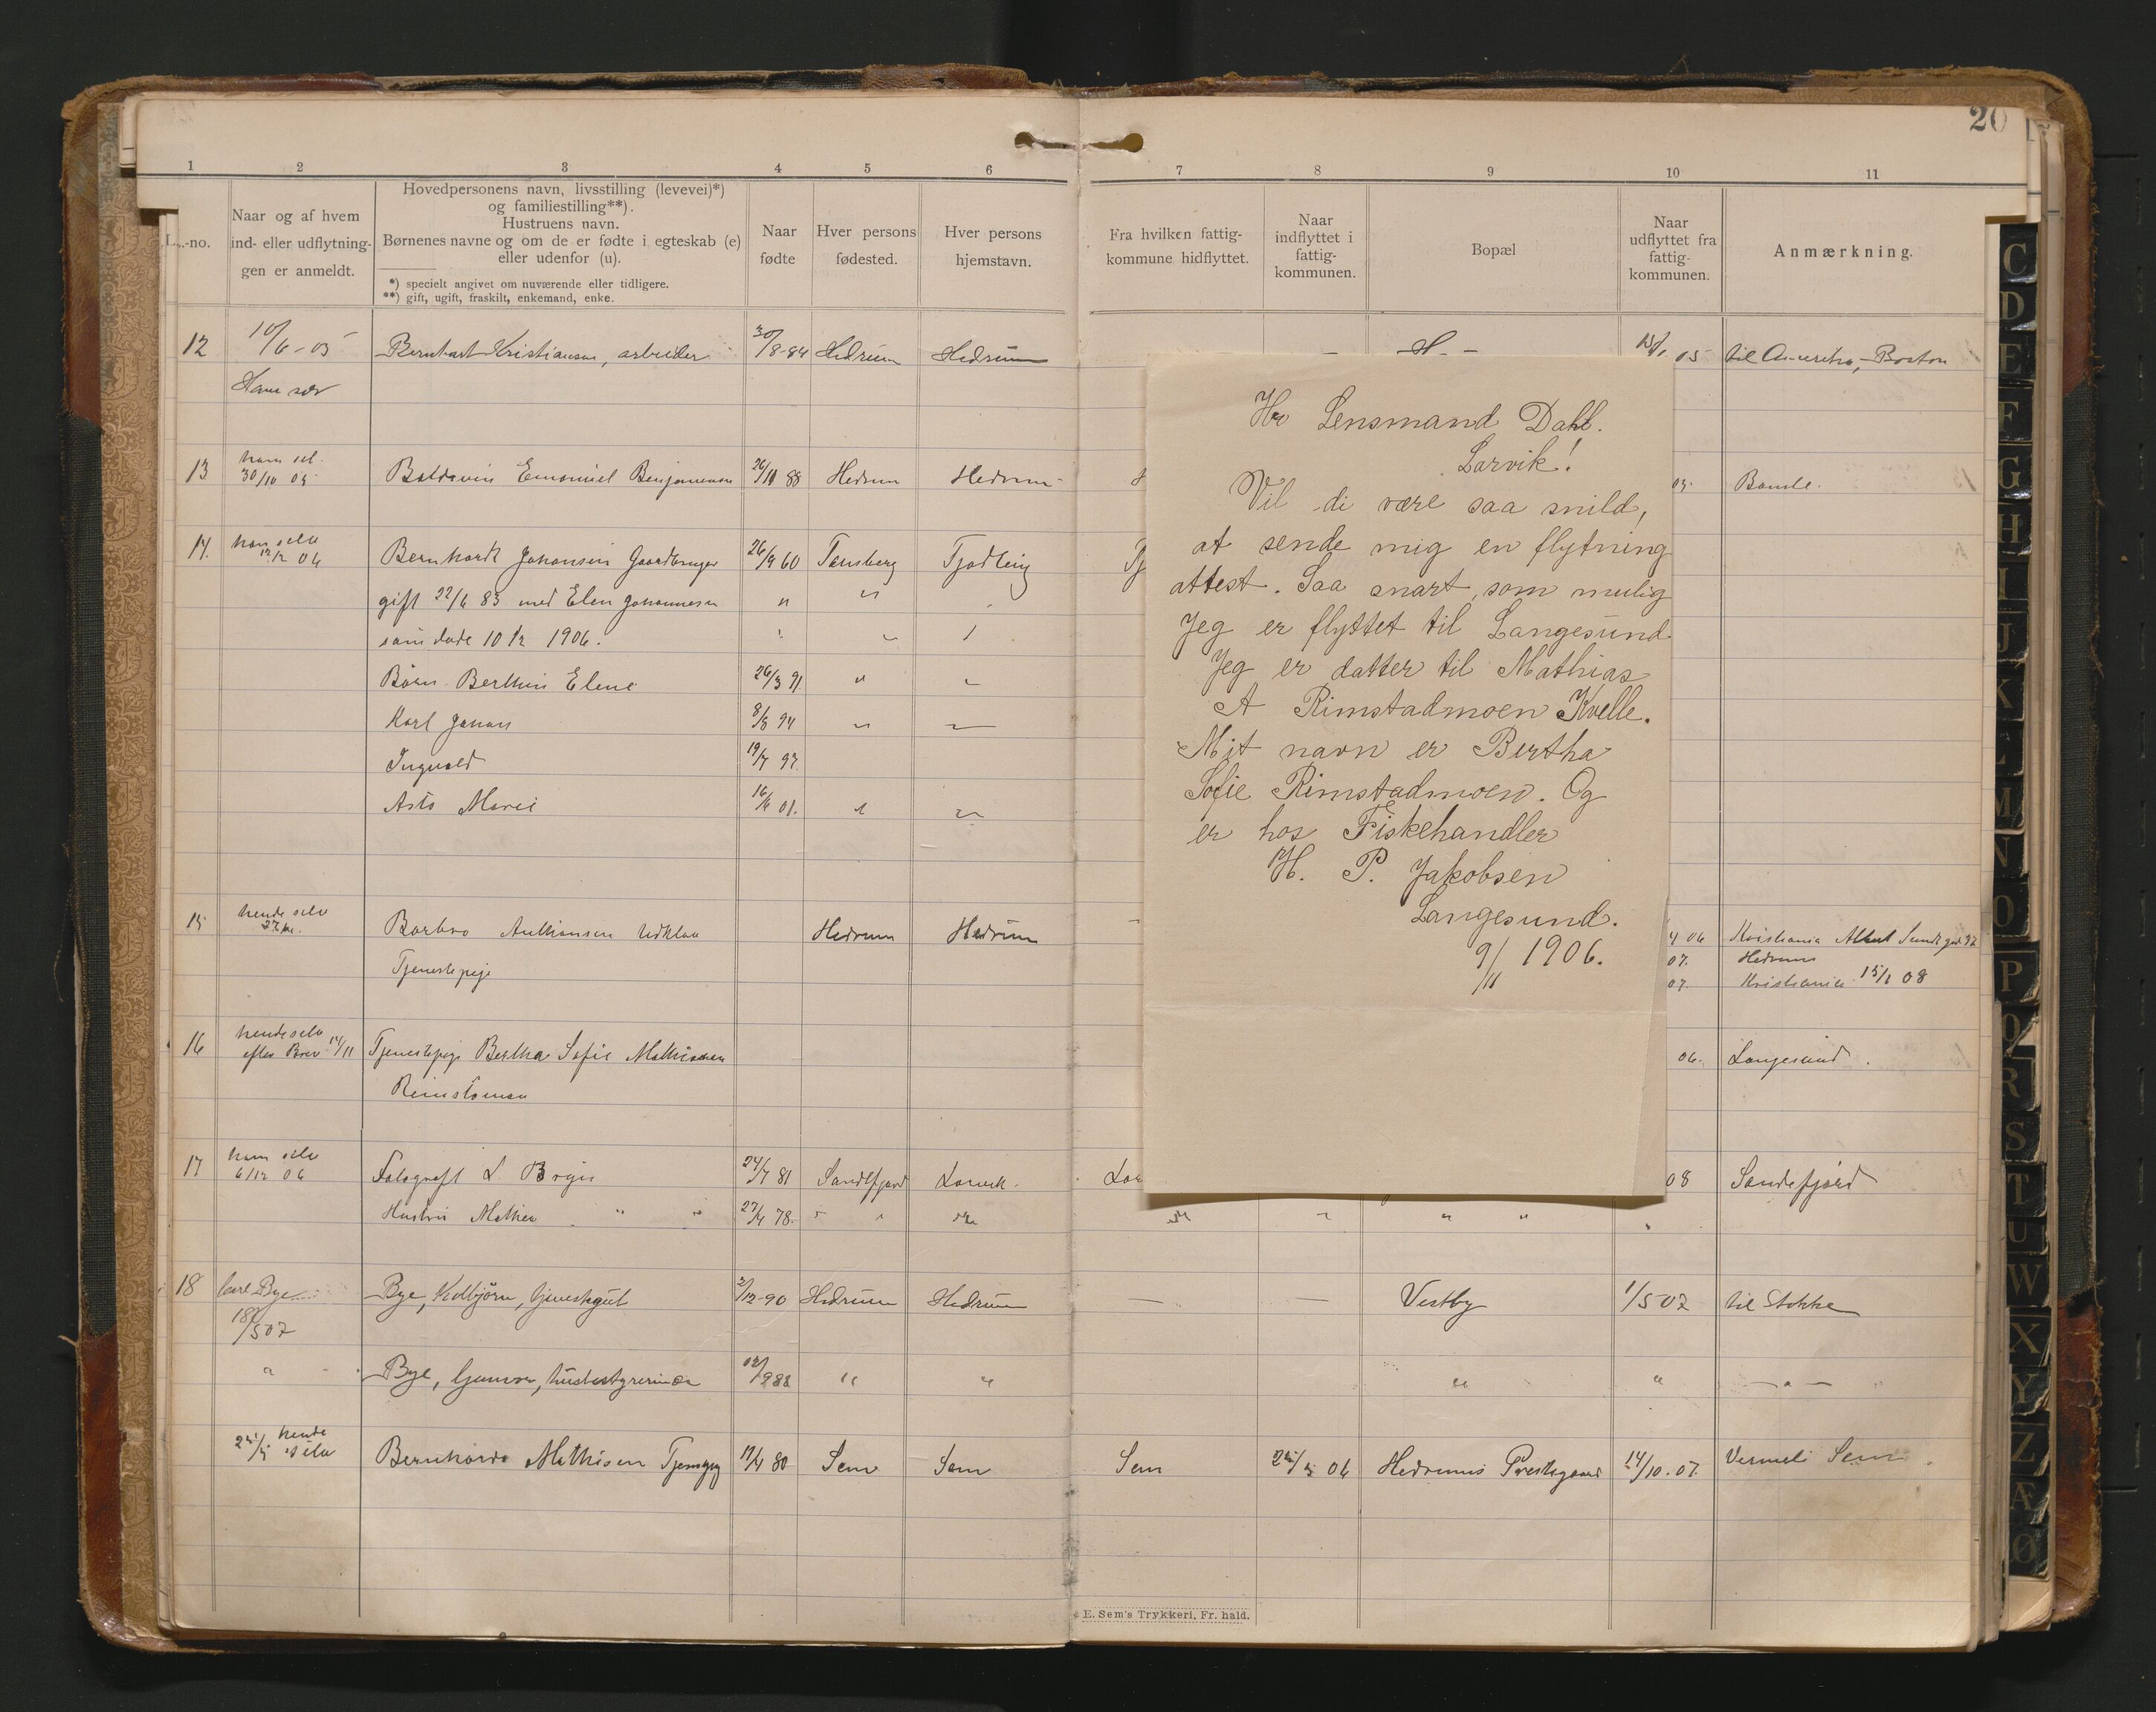 20
1 2 3 4 5 6 7 8 9 10 11
L.-no.
Naar og af hvem
ind- eller udflytnin-
gen er anmeldt.
Hovedpersonens navn, livsstilling (levevei)*)
og familiestilling**).
Hustruens navn.
Børnenes navne og om de er fødte i egteskab (e)
eller udenfor (u).
*) specielt angivet om nuværende eller tidligere.
**) gift, ugift, fraskilt, enkemand, enke.
Naar
fødte
Hver persons
fødested.
Hver persons
hjemstavn.
Fra hvilken fattig-
kommune hidflyttet.
Naar
indflyttet i
fattig-
kommunen.
Bopæl
Naar
udflyttet fra
fattig-
kommunen.
Anmærkning.
12 10/6-05 Bernhart Kristiansen, arbeider 30/8-84 Hedrum Hedrum — H. - 05 til Amerika, Boston
13 ham sel. 30/10 05 Baldevin Emanuel Benjaminsen 26/10 88 Hedrum Hedrum 05. Bamle.
14. ham selv 12/12 06 Bernhard Johansen Gaardbruger 26/9 60 Tønsberg Tjødling Tj
gift 22/6 83 med Elen Johannesen " "
som døde 10/12 1906.
Børn Berthin Elene 26/3 91. " "
Karl Johan 8/8 94 " "
Ingvald 19/7 97.
Asta Marie 16/6 01. " "
15 hende selv Barbro Anthonsen Hedrum Hedrum 4 06 Kristiania
Tjenestepige
07. Hedrum
07. Kristiania 15/1 08
16 hende selv
efter Brev 14/11 Tjenestepige Bertha Sofie Mathisen 06. Langesund.
17 ham selv
6/12 06 Fotograf L Bryn 24/7 81 Sandefjord Larvik. Lar 08 Sandefjord
Hustru Mathea " " 27/4 78. " "
18 Carl Bye Bye, Kolbjørn, tjenestegut 2/12-90 Hedrum Hedrum — — Vestby 1/5 07 til Stokke
18/5 07
" Bye, Gunvor, husbestyrerinde " " " " — " —
hende
selv Bernharda Mathisen Tjenpig 17/4 80 Sem Sem Sem 24/5 06 Hedrums Prestegaard 14/10. 07. Vermeli Sem
E. Sem's Trykkeri, Fr.hald.
Hr Lensmand Dahl.
Larvik!
Vil di være saa snild,
at sende mig en flytning
attest. Saa snart, som mulig
Jeg er flyttet til Langesund.
Jeg er datter til Mathias
A Rimstadmoen Kvelle.
Mit navn er Bertha
Sofie Rimstadmoen. Og
er hos Fiskehandler
H. P. Jakobsen
Langesund.
9/11 1906.
C
D
E
F
G
H
I
J
K
L
M
N
O
P
Q
R
S
T
U
W
X
Y
Z
Æ
Ø